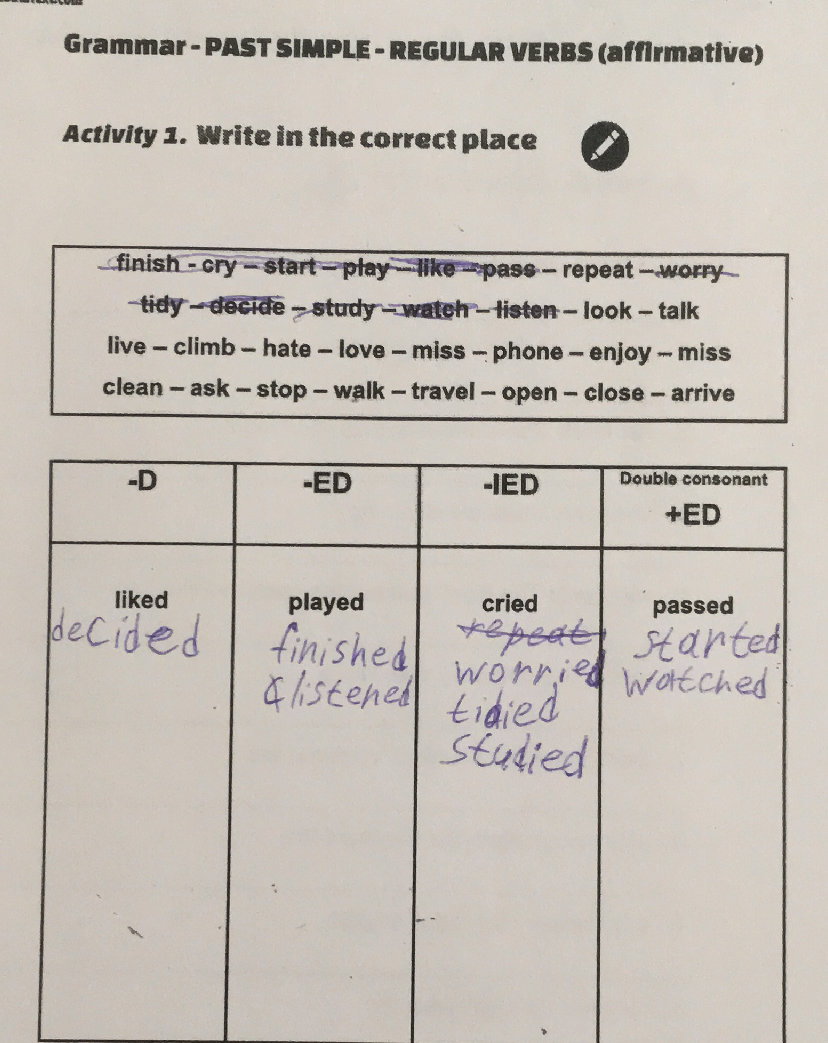 Grammar - PAST SIMPLE - REGULAR VERBS (affirmative)
Activity 1. Write in the correct place
finish - cry – start – play – like – pass – repeat – worry
tidy – decide – study – watch – listen – look – talk
live – climb – hate – love – miss – phone – enjoy – miss
clean – ask – stop – walk – travel – open – close – arrive
-D
-ED
-IED
Double consonant
+ED
liked
decided
played
finished
listened
cried
repeat
worried
tidied
studied
passed
started
watched